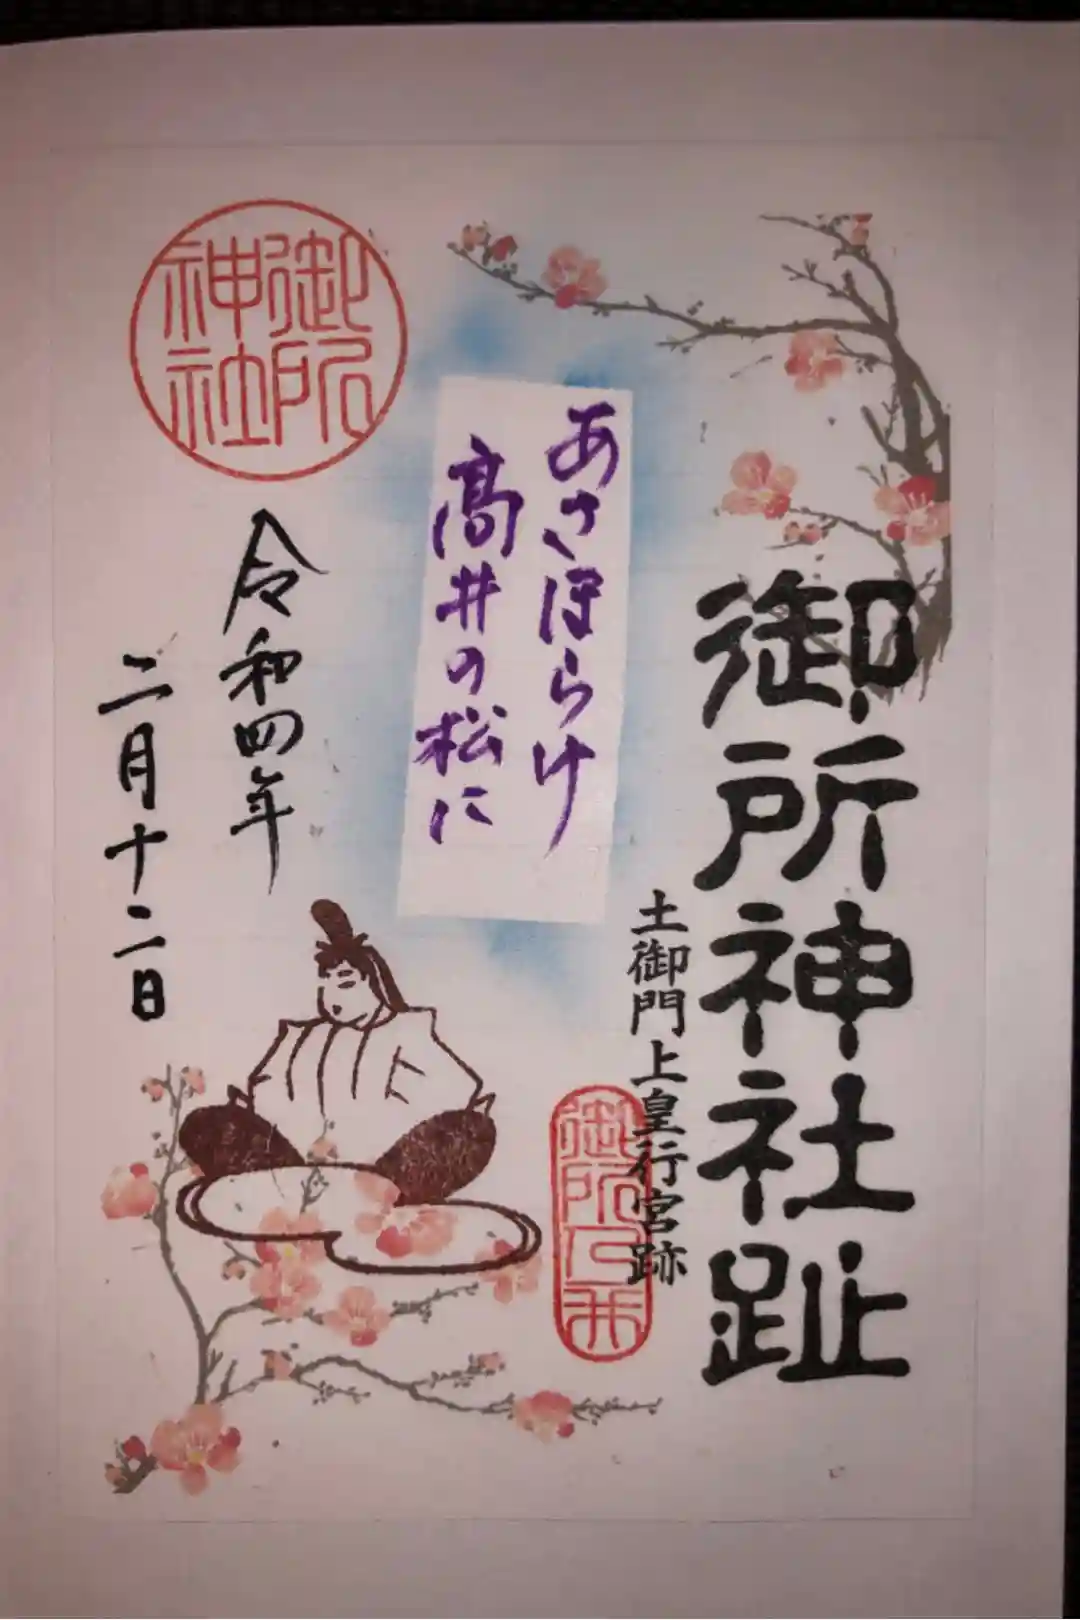 御所神社趾
土御門上皇行宮跡
あさぼらけ
髙井の松に
御所
神社
令和四年
二月十二日